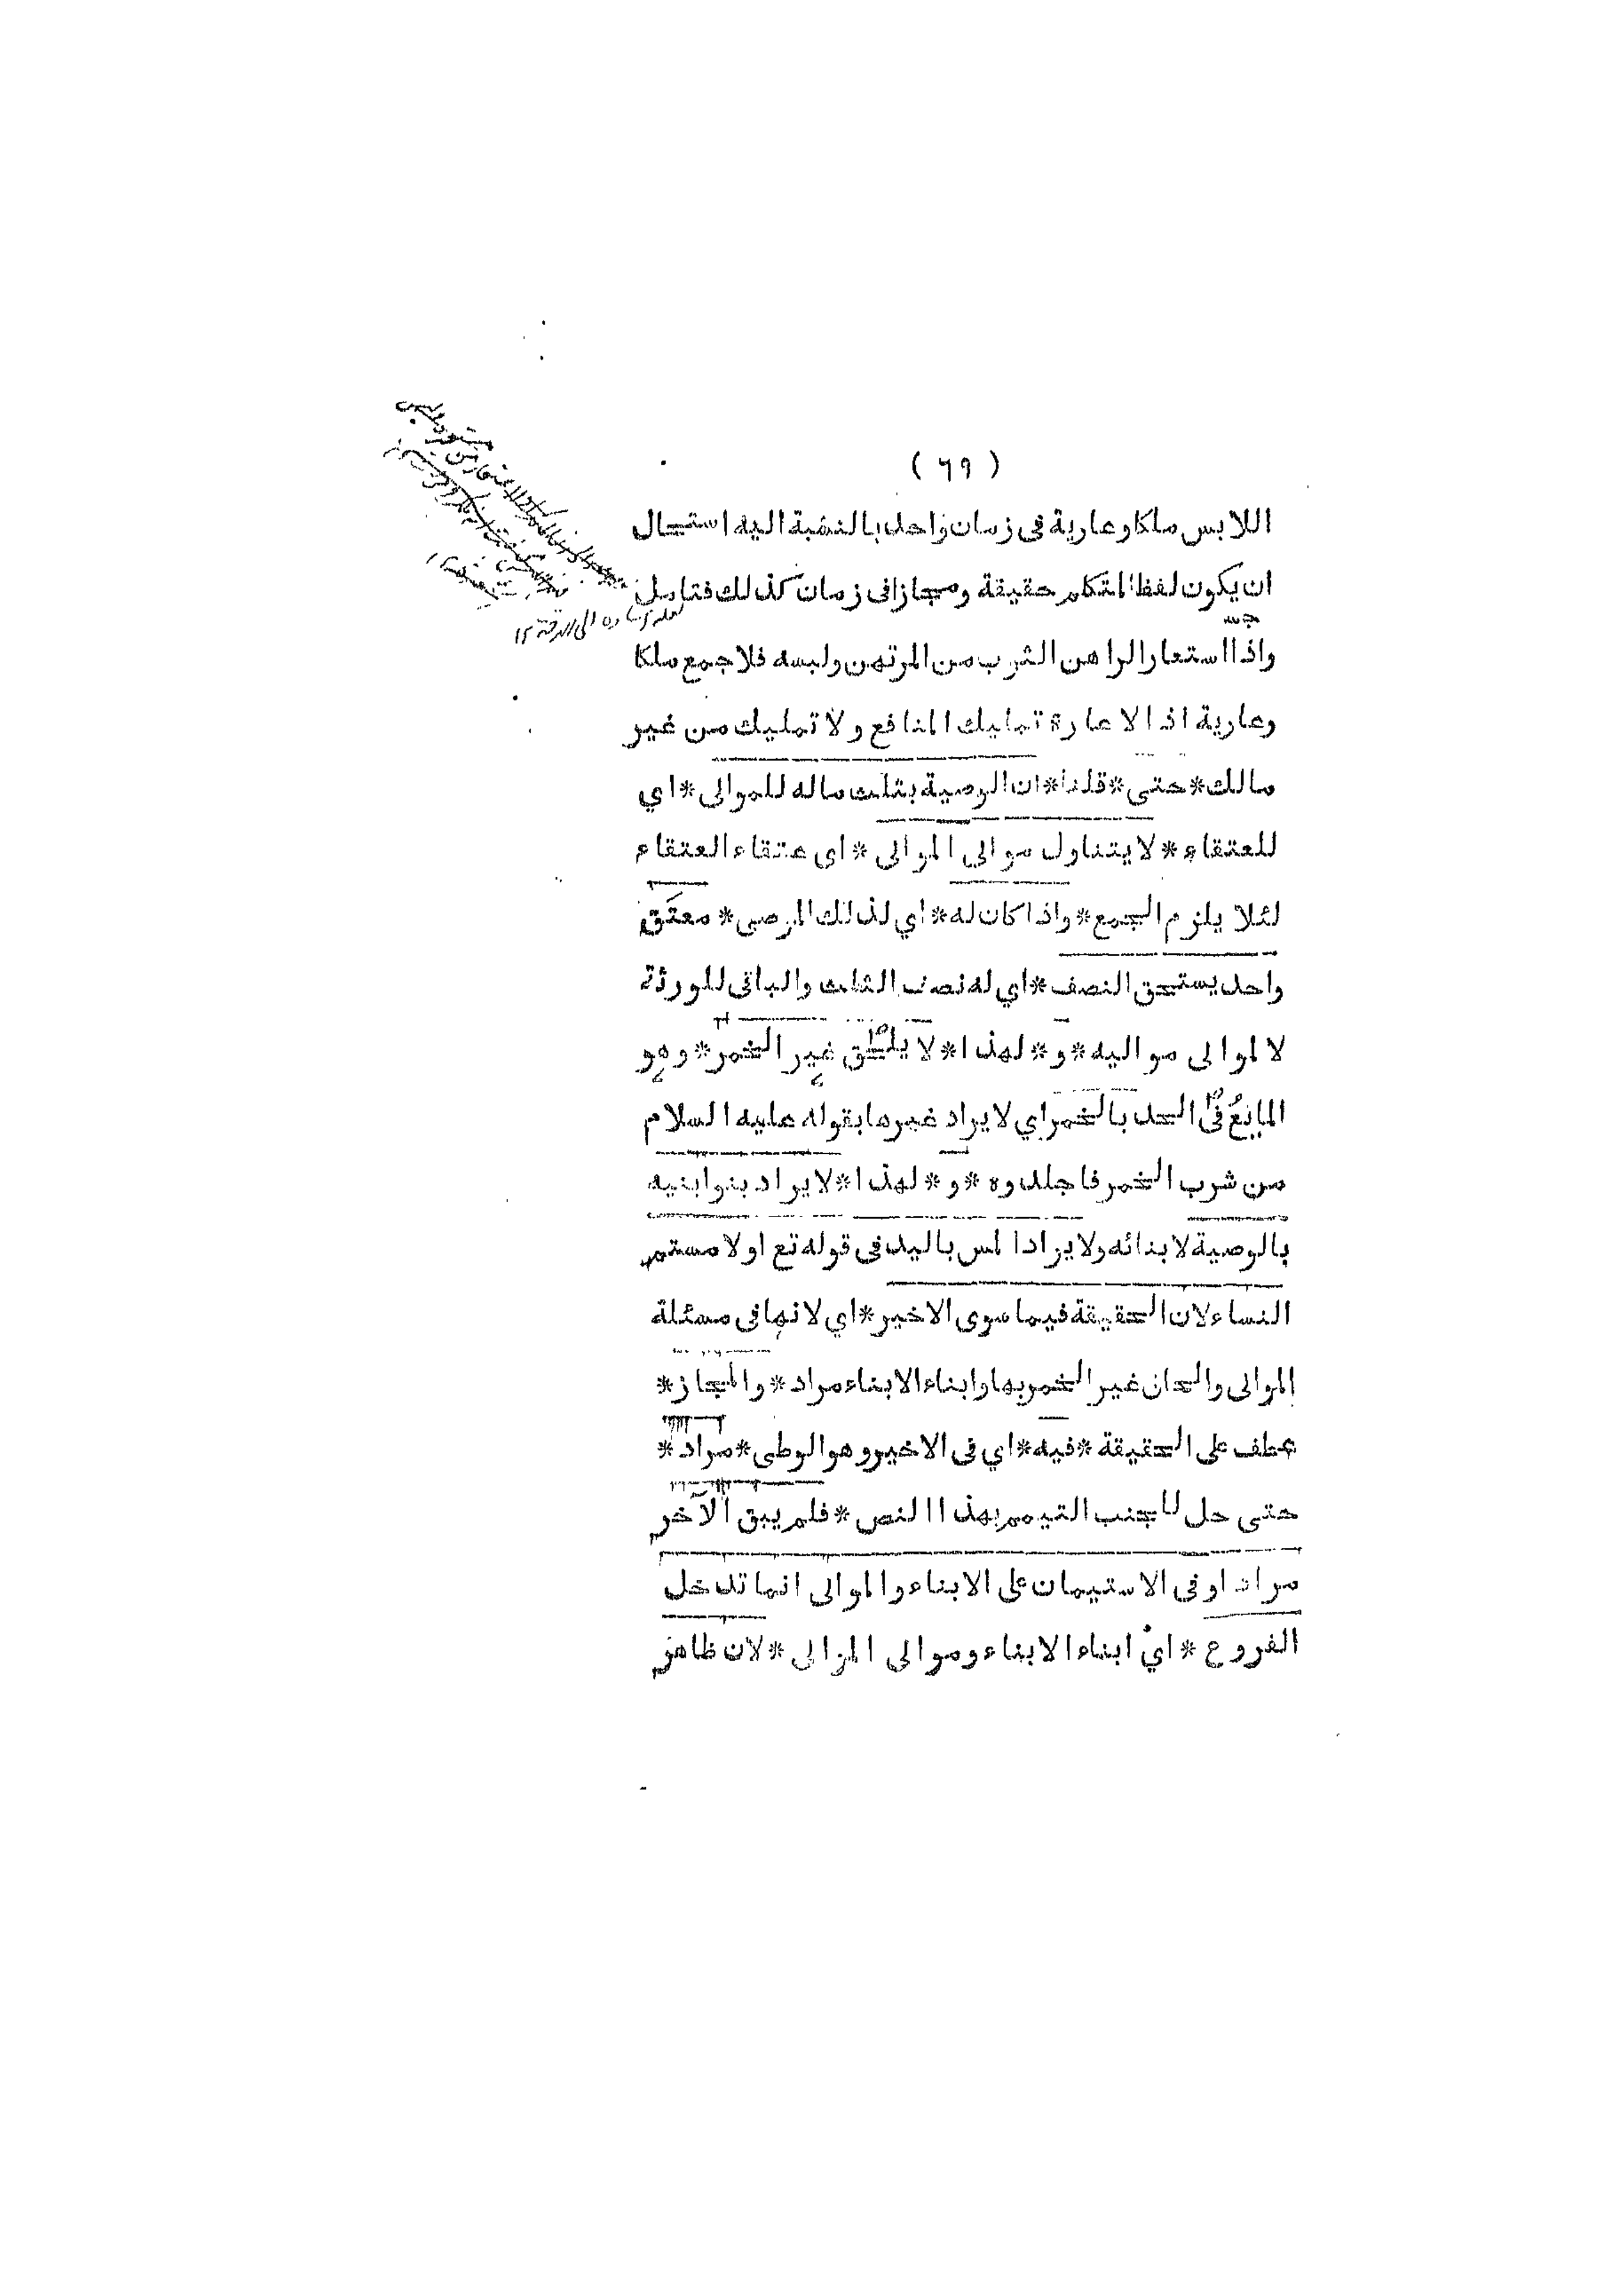 ( ٦٩ )
اللابس ملكا وعارية فى زمان واحد بالنسبة اليه استحال
ان يكون لفظ المتكلم حقيقة ومجازا فى زمان كذلك فتامل
واذا استعار الراهن الثوب من المرتهن ولبسه فلا جمع ملكا
وعارية اذ الاعارة تمليك المنافع ولا تمليك من غير
مالك * حتى * قلنا * ان الوصية بثلث ماله للموالى * اي
للعتقاء * لا يتناول موالى الموالى * اى عتقاء العتقاء
لئلا يلزم الجمع * واذا كان له * اي لذلك الموصى * معتق
واحد يستحق النصف * اي له نصف الثلث والباقى للورثة
لا لموالى مواليه * و * لهذا * لا يلحق غير الخمر * وهو
المايع فى الحد بالخمر اي لا يراد غيرها بقوله عليه السلام
من شرب الخمر فاجلدوه * و * لهذا * لا يراد بنوا بنيه
بالوصية لابنائه ولا يراد المس باليد فى قوله تع او لا مستم
النساء لان الحقيقة فيما سوى الاخير * اي لانها فى مسئلة
الموالى والحاق غير الخمر بها وابناء الابناء مراد * والمجاز *
عطف على الحقيقة * فيه * اي فى الاخير وهو الوطى * مراد *
حتى حل للجنب التيمم بهذا النص * فلم يبق الآخر
مرادا وفى الاستيمان على الابناء والموالى انما تدخل
الفروع * اي ابناء الابناء وموالى الموالى * لان ظاهر